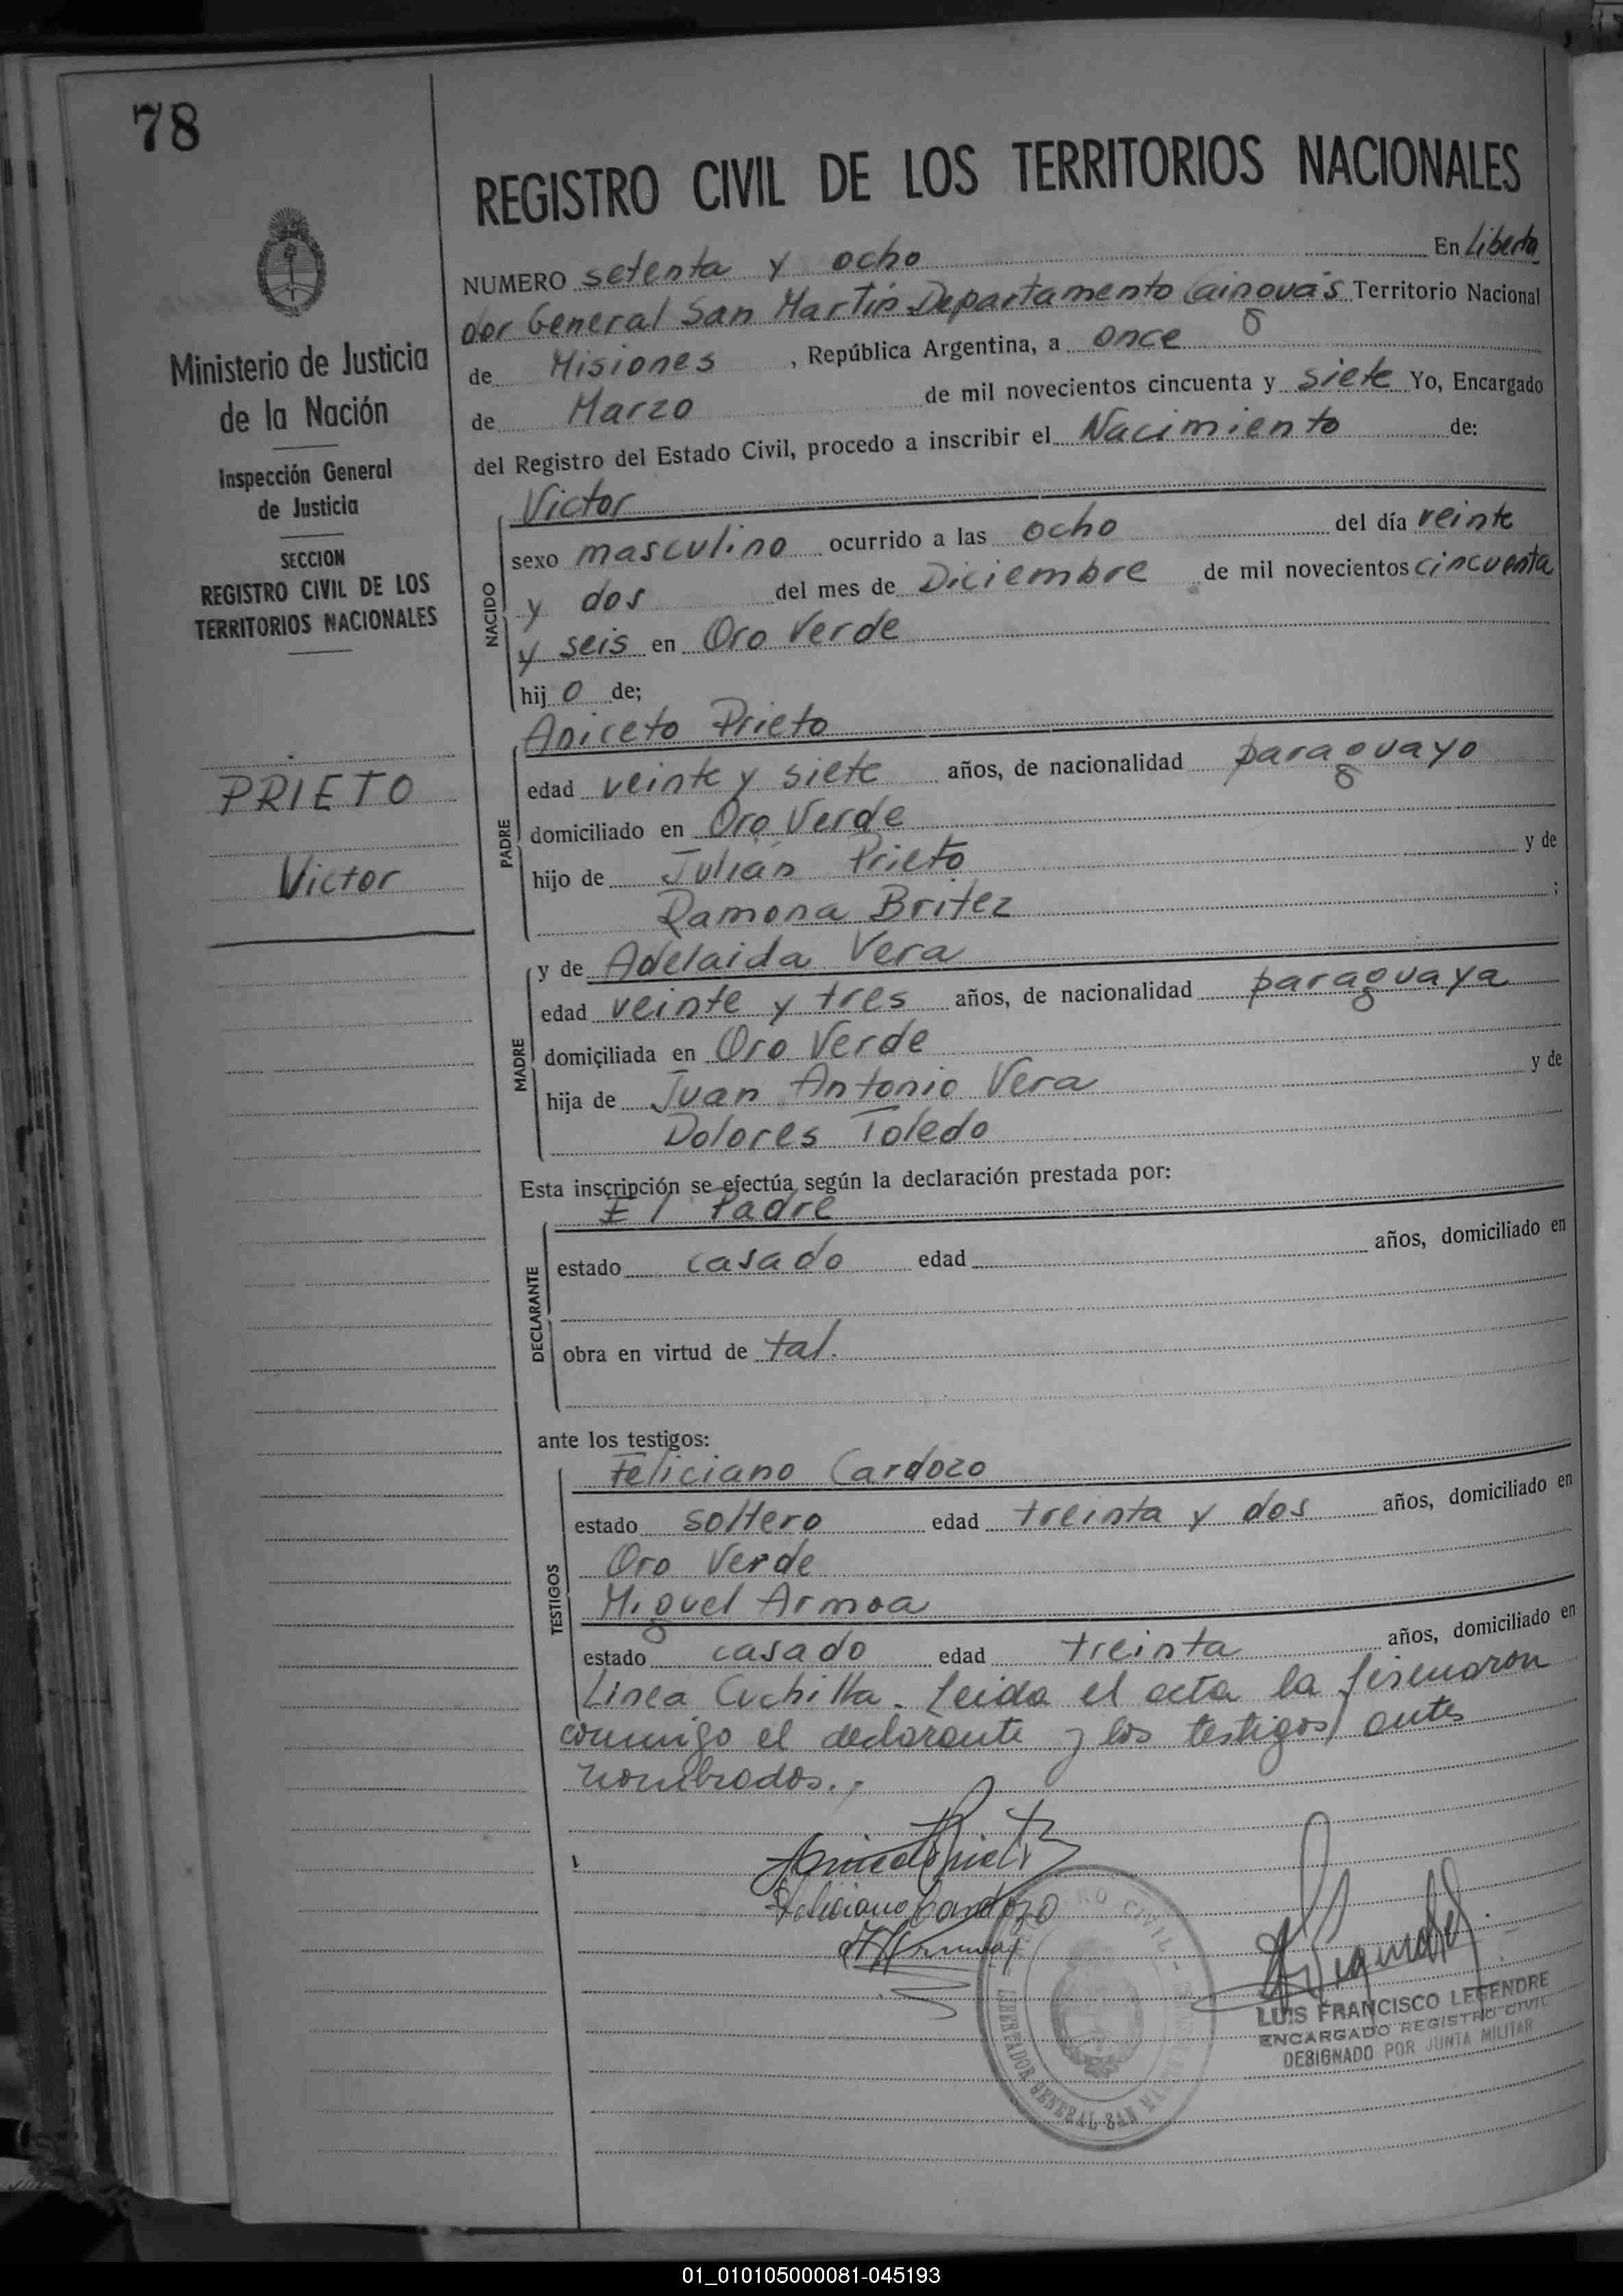 78
REGISTRO CIVIL DE LOS TERRITORIOS NACIONALES
Ministerio de Justicia
de la Nación
Inspección General
de Justicia
SECCION
REGISTRO CIVIL DE LOS
TERRITORIOS NACIONALES
PRIETO
Victor
NUMERO setenta y ocho En Liberta
dor General San Martin Departamento Cainguás Territorio Nacional
de Misiones , República Argentina, a once
de Marzo de mil novecientos cincuenta y siete Yo, Encargado
del Registro del Estado Civil, procedo a inscribir el Nacimiento de:
NACIDO
Victor
sexo masculino ocurrido a las ocho del día veinte
y dos del mes de Diciembre de mil novecientos cincuenta
y seis en Oro Verde
hij o de;
PADRE
Aniceto Prieto
edad veinte y siete años, de nacionalidad paraguayo
domiciliado en Oro Verde
hijo de Julián Prieto y de
Ramona Britez ;
MADRE
y de Adelaida Vera
edad veinte y tres años, de nacionalidad paraguaya
domiciliada en Oro Verde
hija de Juan Antonio Vera y de
Dolores Toledo
Esta inscripción se efectúa según la declaración prestada por:
DECLARANTE
El Padre
estado casado edad años, domiciliado en
obra en virtud de tal.
ante los testigos:
TESTIGOS
Feliciano Cardozo
estado soltero edad treinta y dos años, domiciliado en
Oro Verde
Miguel Armoa
estado casado edad treinta años, domiciliado en
Linea Cuchilla. Leida el acta la firmaron
conmigo el declarante y los testigos antes
nombrados.
Aniceto Prieto
Feliciano Cardozo
REGISTRO CIVIL
LIBERTADOR GENERAL SAN MARTIN
LUIS FRANCISCO LEGENDRE
ENCARGADO REGISTRO CIVIL
DESIGNADO POR JUNTA MILITAR
01_010105000081-045193